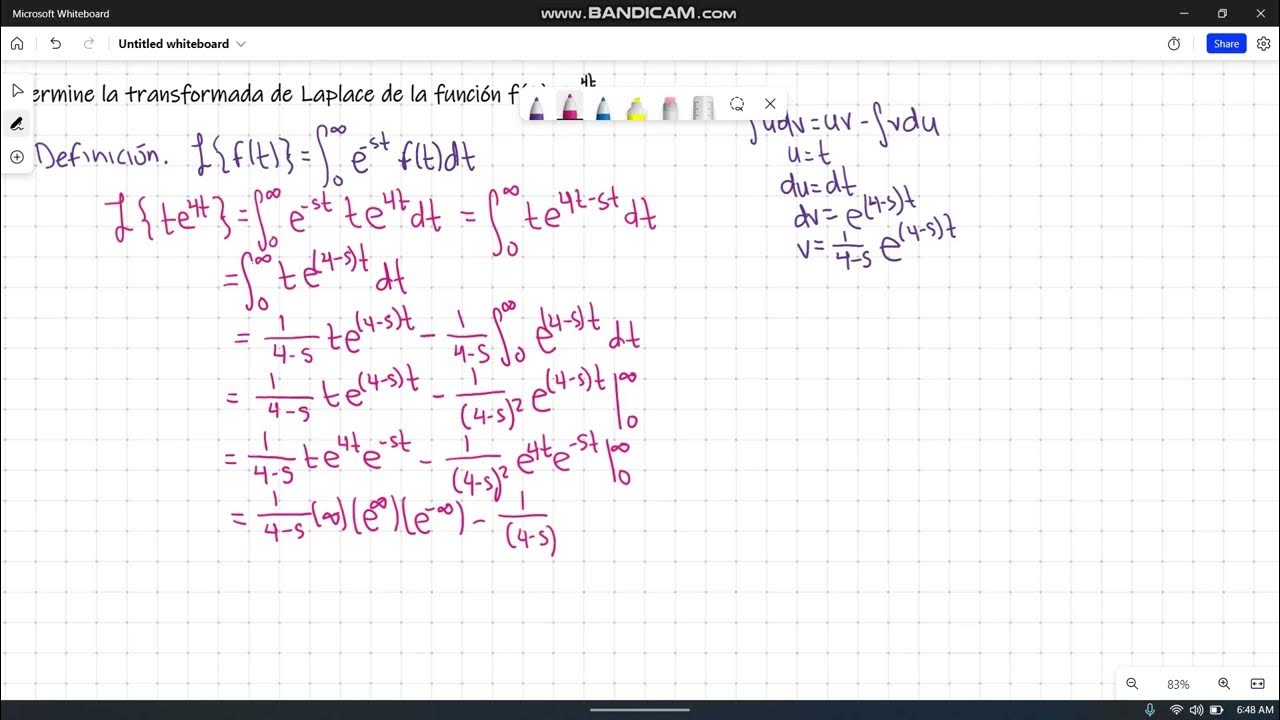 Microsoft Whiteboard
www.BANDICAM.com
Untitled whiteboard
Share
ermine la transformada de Laplace de la función f( 4t
Definición. ℒ{f(t)} = ∫₀^∞ e^{-st} f(t)dt
ℒ{te^{4t}} = ∫₀^∞ e^{-st} te^{4t} dt = ∫₀^∞ te^{4t-st} dt
= ∫₀^∞ te^{(4-s)t} dt
= 1/(4-s) te^{(4-s)t} - 1/(4-s) ∫₀^∞ e^{(4-s)t} dt
= 1/(4-s) te^{(4-s)t} - 1/(4-s)² e^{(4-s)t} |₀^∞
= 1/(4-s) te^{4t}e^{-st} - 1/(4-s)² e^{4t}e^{-st} |₀^∞
= 1/(4-s) (∞)(e^∞)(e^{-∞}) - 1/(4-s)
∫udv = uv - ∫vdu
u = t
du = dt
dv = e^{(4-s)t}
v = 1/(4-s) e^{(4-s)t}
83%
6:48 AM